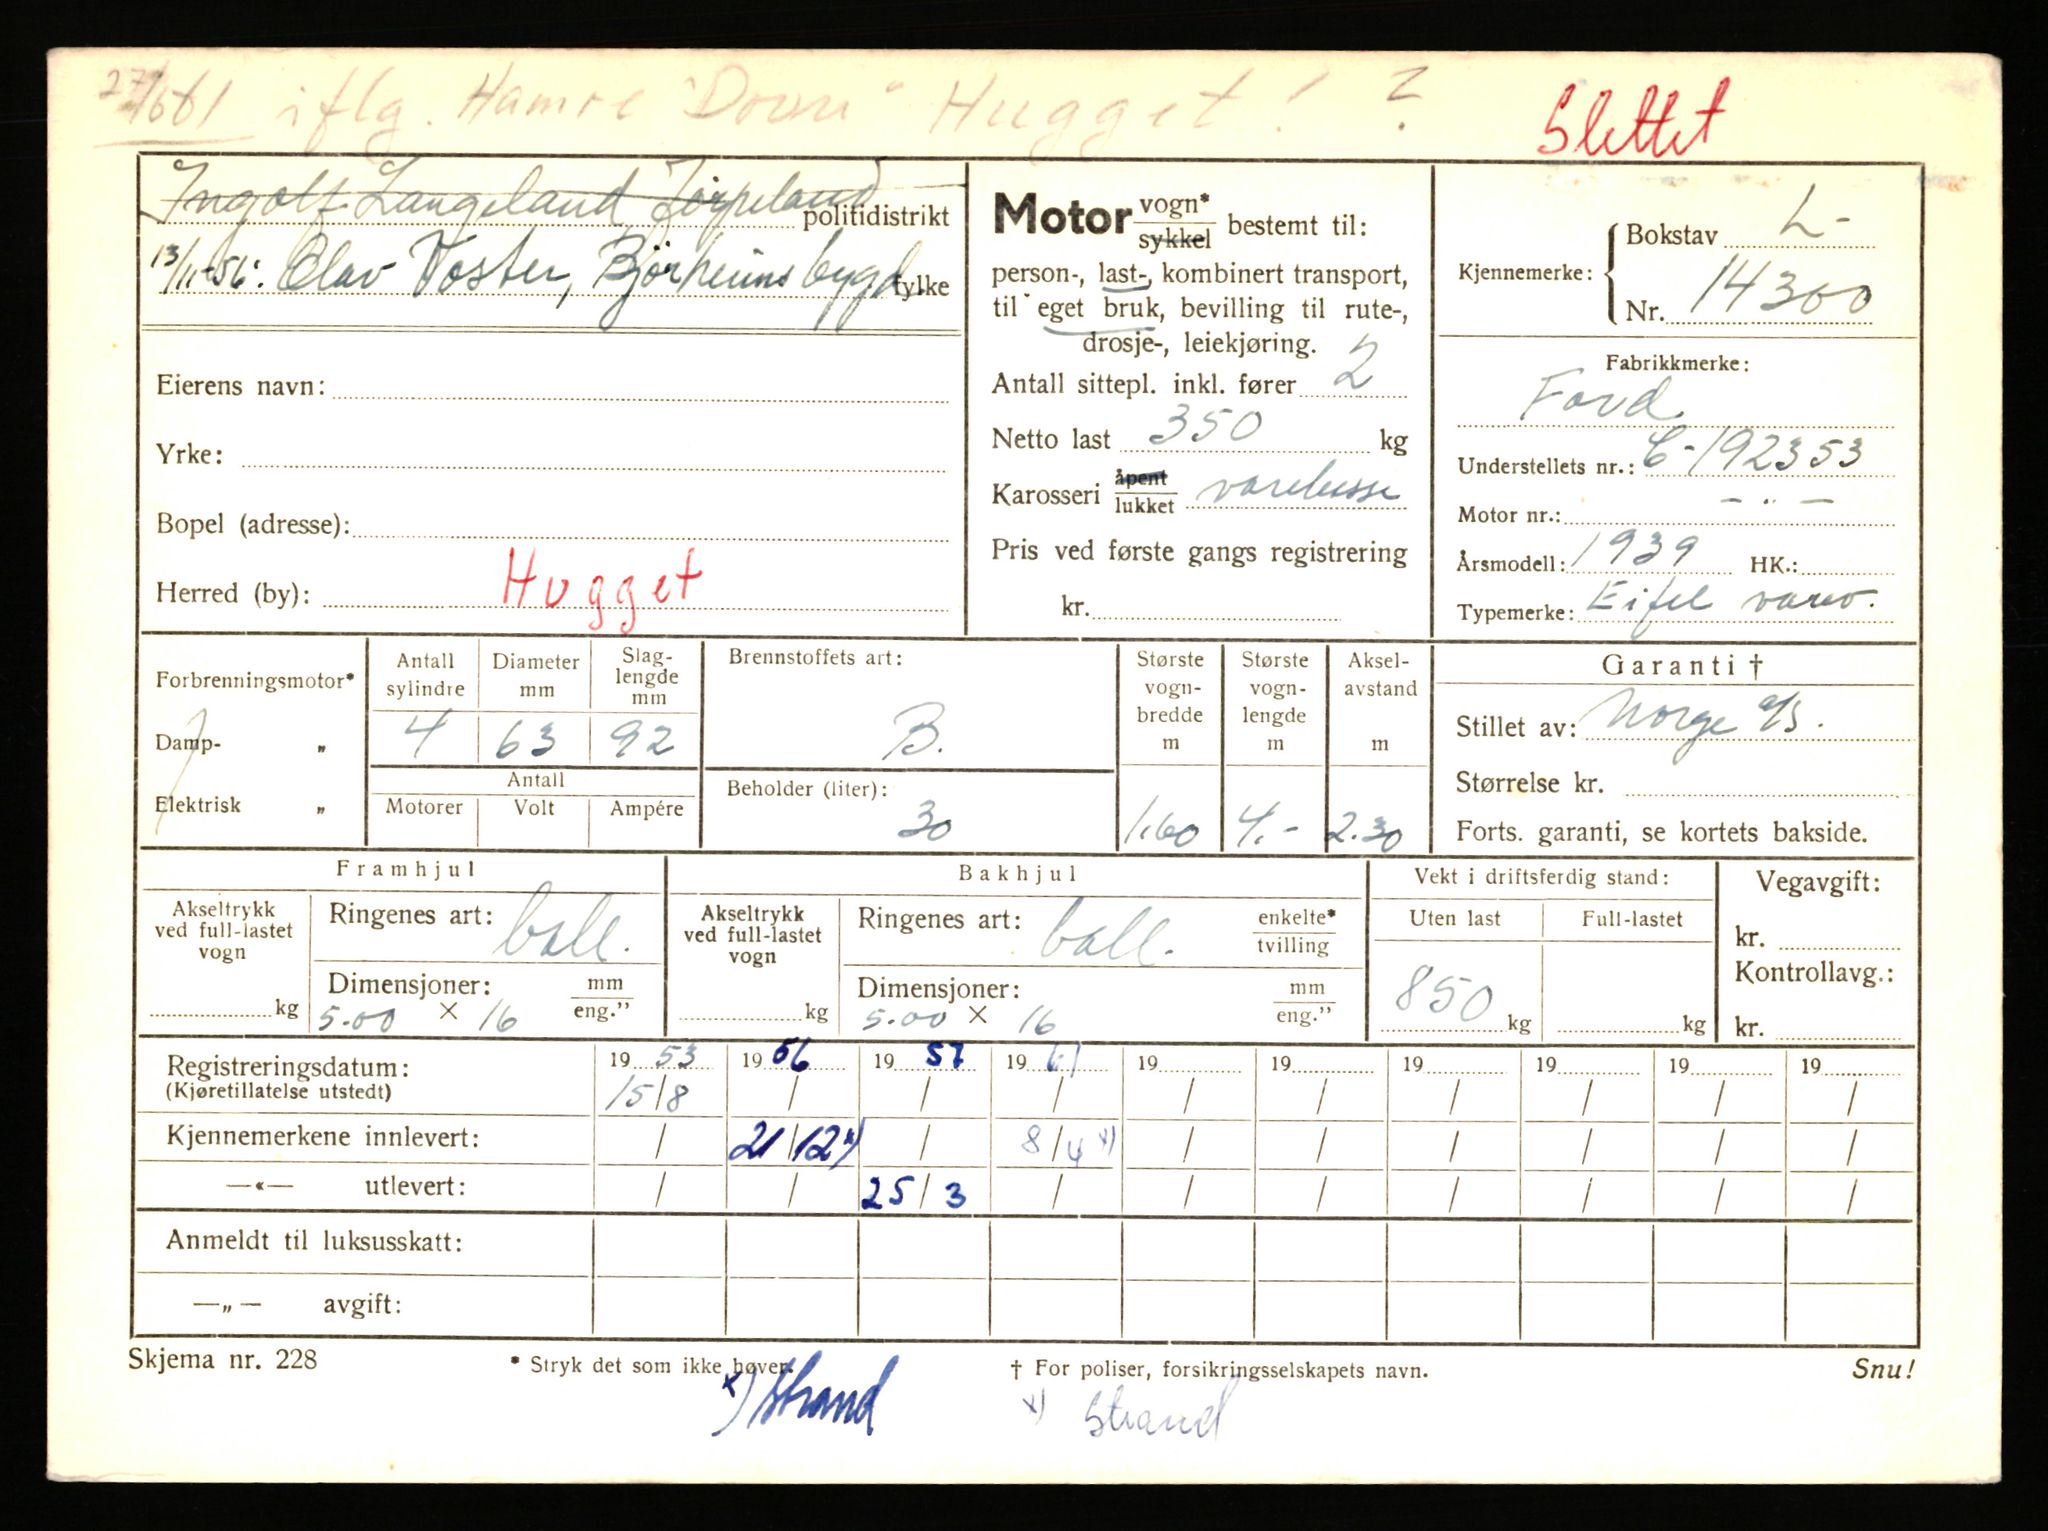 27/6 61 iflg. Hamre "Dovre" Hugget! ?
Slettet
Ingolf Langeland, Jørpeland politidistrikt
13/11-56: Olav Voster, Bjørheimsbygd. fylke
Eierens navn:
Yrke:
Bopel (adresse):
Herred (by): Hugget
Motor vogn* sykkel bestemt til:
person-, last-, kombinert transport,
til eget bruk, bevilling til rute-,
drosje-, leiekjøring.
Antall sittepl. inkl. fører 2
Netto last 350 kg
Karosseri åpent lukket varebusse
Pris ved første gangs registrering
kr.
Kjennemerke: { Bokstav L-
Nr. 14300
Fabrikkmerke:
Ford
Understellets nr.: C-192353
Motor nr.: - " -
Årsmodell: 1939 HK.:
Typemerke: Eifel varev.
Forbrenningsmotor*
Damp- „
Elektrisk „
Antall sylindre Diameter mm Slag-lengde mm
4 63 92
Antall
Motorer Volt Ampére
Brennstoffets art:
B.
Beholder (liter):
30
Største vogn-bredde m Største vogn-lengde m Aksel-avstand m
1.60 4.- 2.30
Garanti †
Stillet av: Norge a/s.
Størrelse kr.
Forts. garanti, se kortets bakside.
Framhjul
Akseltrykk ved full-lastet vogn
kg
Ringenes art: ball.
Dimensjoner: mm eng.”
5.00 × 16
Bakhjul
Akseltrykk ved full-lastet vogn
kg
Ringenes art: ball. enkelte* tvilling
Dimensjoner: mm eng.”
5.00 × 16
Vekt i driftsferdig stand:
Uten last Full-lastet
850 kg kg
Vegavgift:
kr.
Kontrollavg.:
kr.
Registreringsdatum: 19 53 19 56 19 57 19 61 19 19 19 19 19 19
(Kjøretillatelse utstedt) 15/8 / / / / / / / / /
Kjennemerkene innlevert: / 21/12 x) / 8/4 x) / / / / / /
—«— utlevert: / / 25/3 / / / / / / /
Anmeldt til luksusskatt:
—„— avgift:
Skjema nr. 228 * Stryk det som ikke høver. † For poliser, forsikringsselskapets navn. Snu!
x) Strand x) Strand